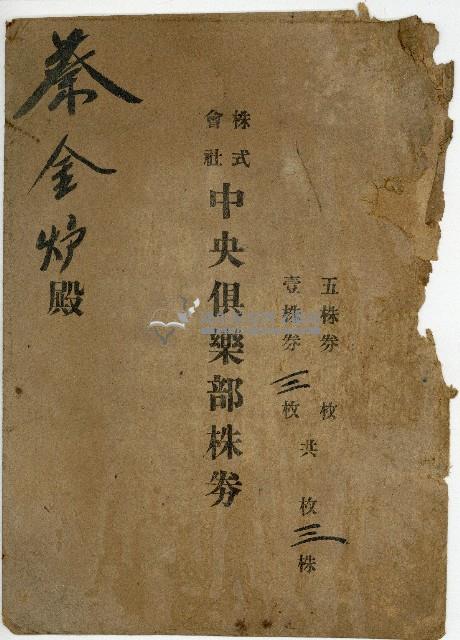 五株券 枚
壹株券 三枚
共 枚 三株
株式會社中央俱樂部株券
蔡金炉殿